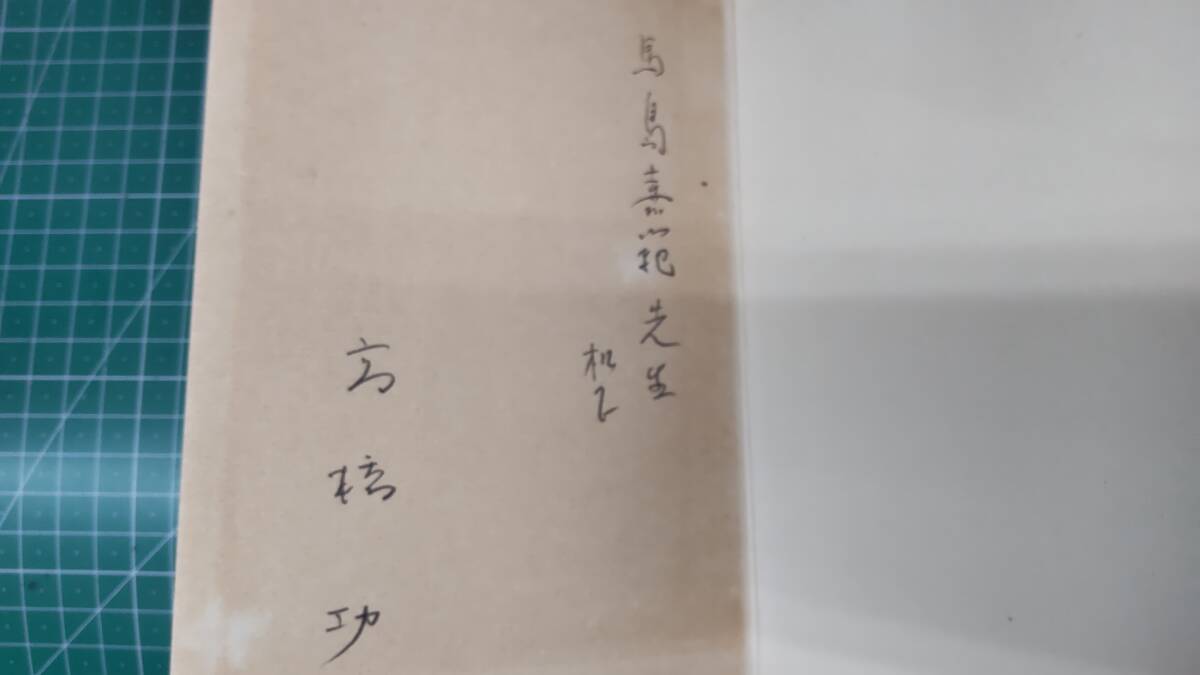 馬島嘉範先生
机下
高橋功